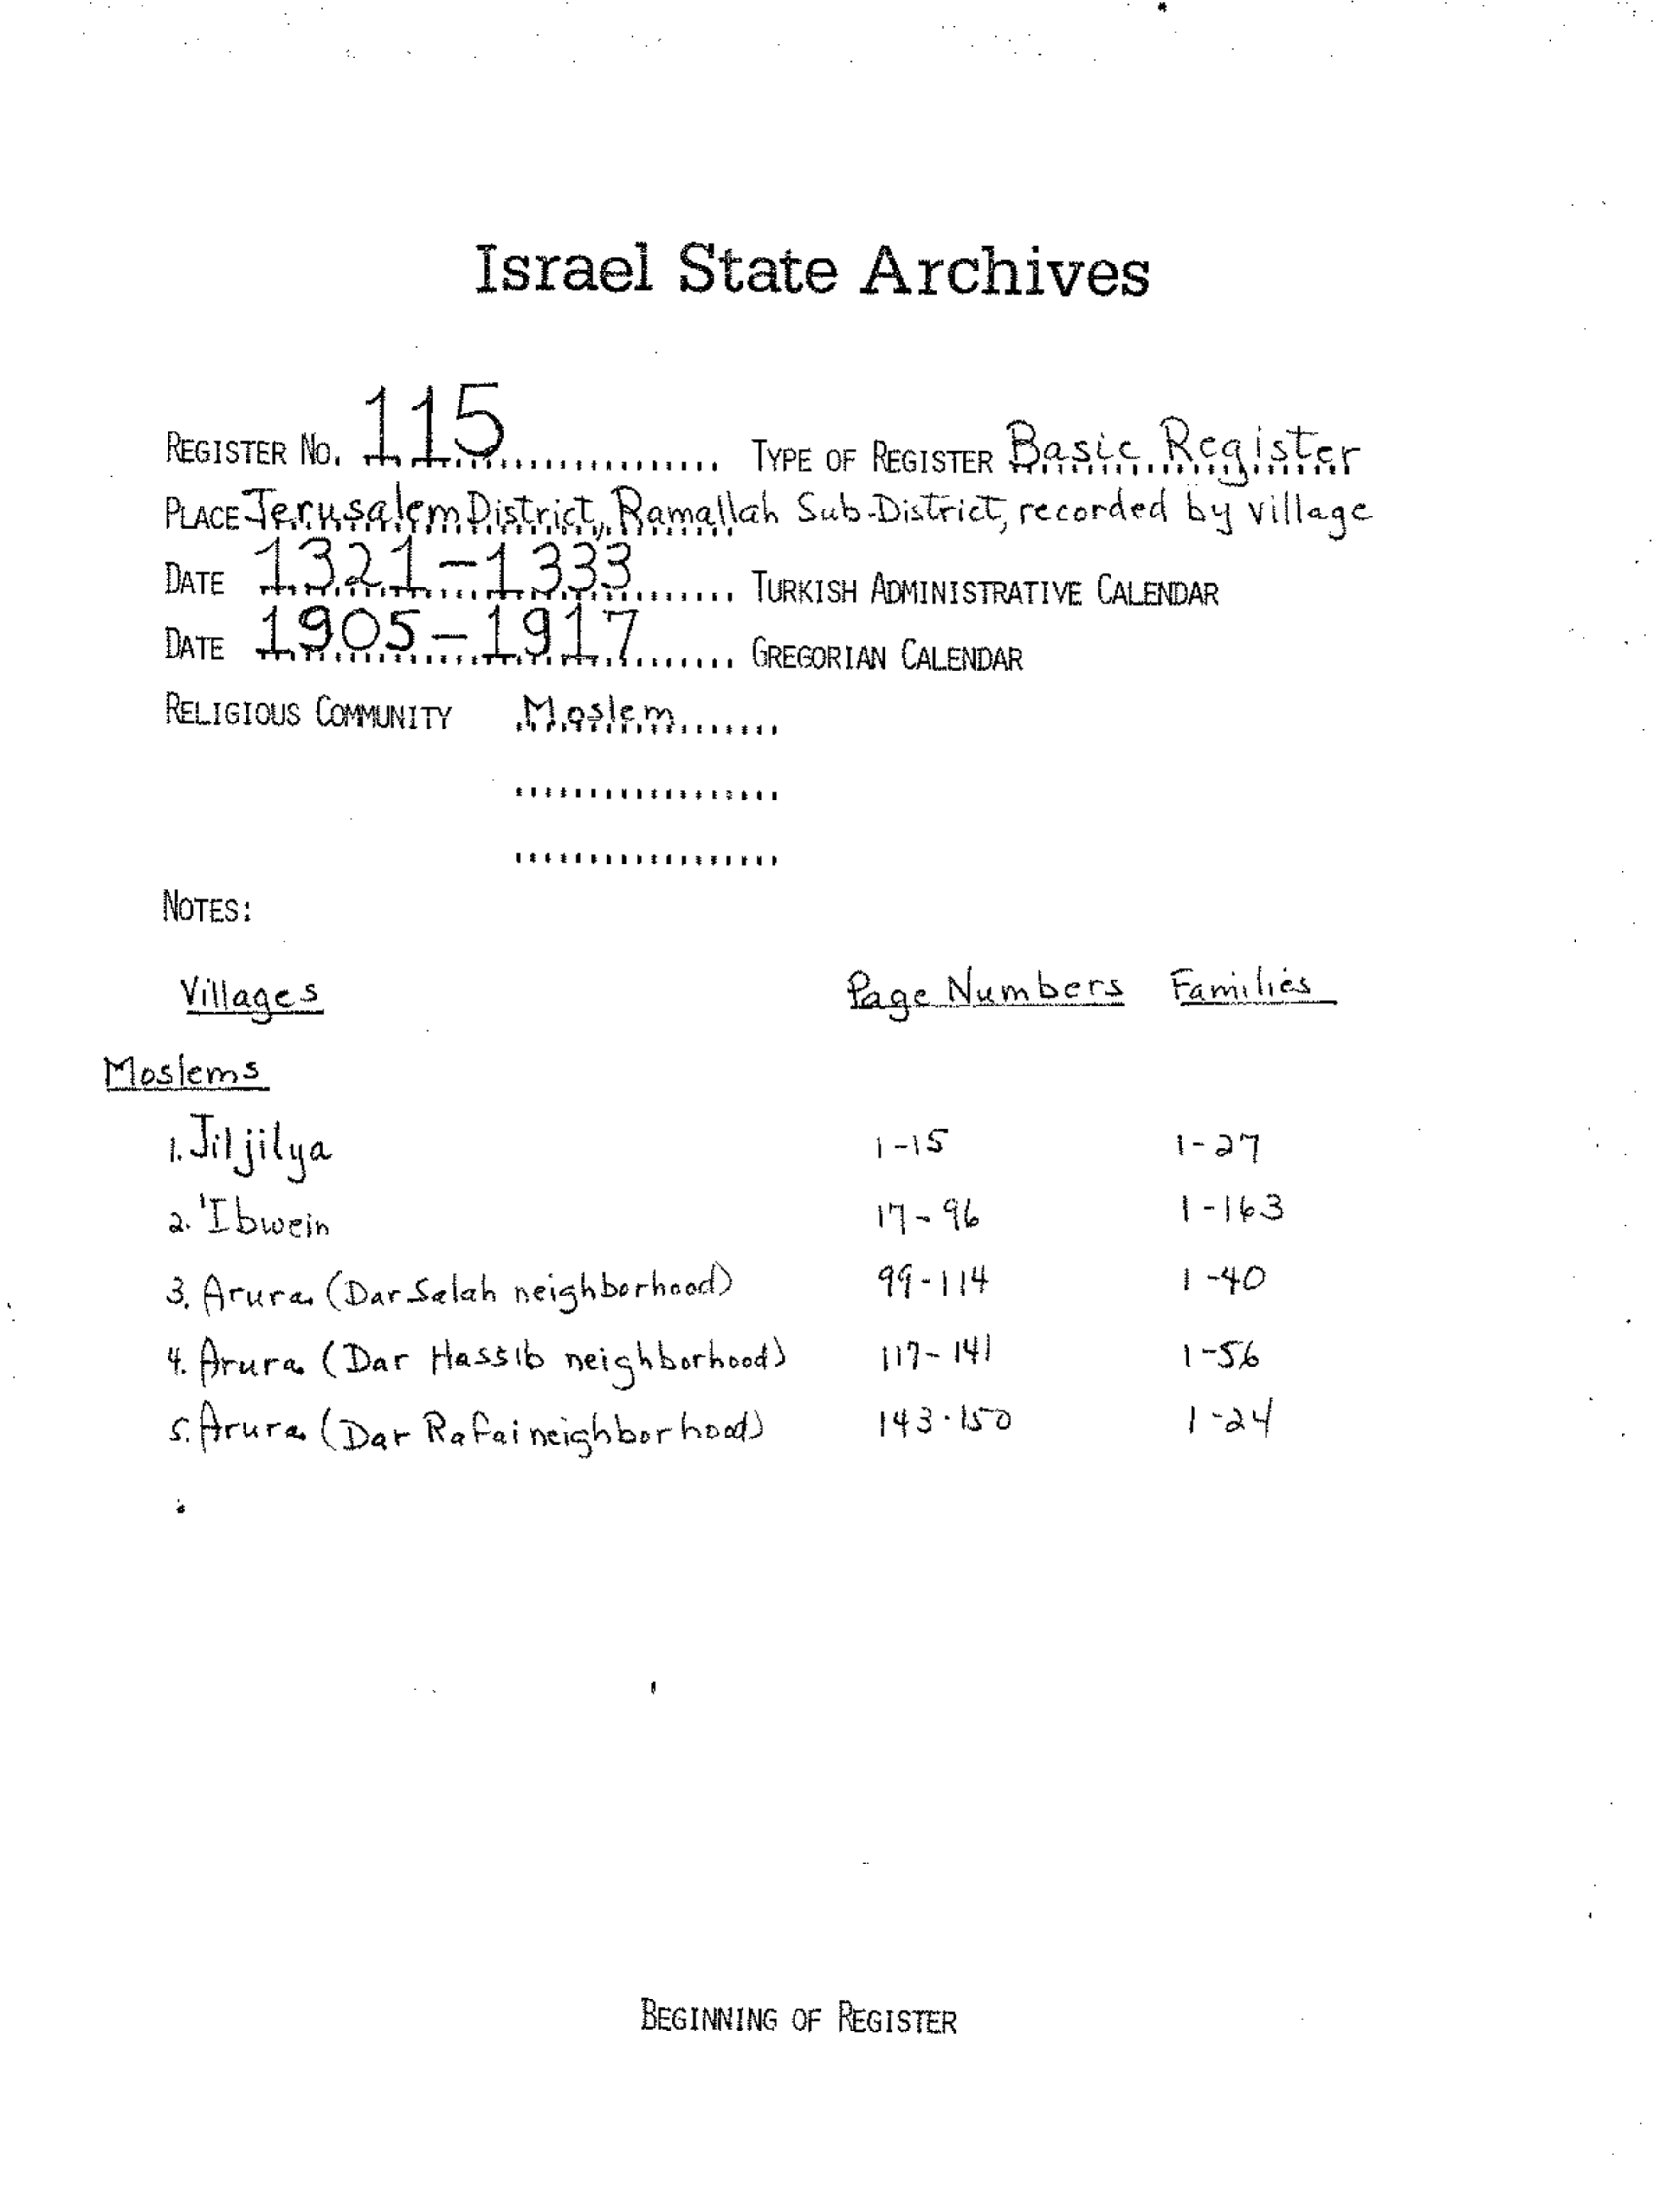 Israel State Archives
REGISTER NO. 115 TYPE OF REGISTER Basic Register
PLACE Jerusalem District, Ramallah Sub-District, recorded by village
DATE 1321-1333 TURKISH ADMINISTRATIVE CALENDAR
DATE 1905-1917 GREGORIAN CALENDAR
RELIGIOUS COMMUNITY Moslem
NOTES:
Villages Page Numbers Families
Moslems
1. Jiljilya 1-15 1-27
2. 'Ibwein 17-96 1-163
3. Arura (Dar Salah neighborhood) 99-114 1-40
4. Arura (Dar Hassib neighborhood) 117-141 1-56
5. Arura (Dar Rafai neighborhood) 143-150 1-24
BEGINNING OF REGISTER